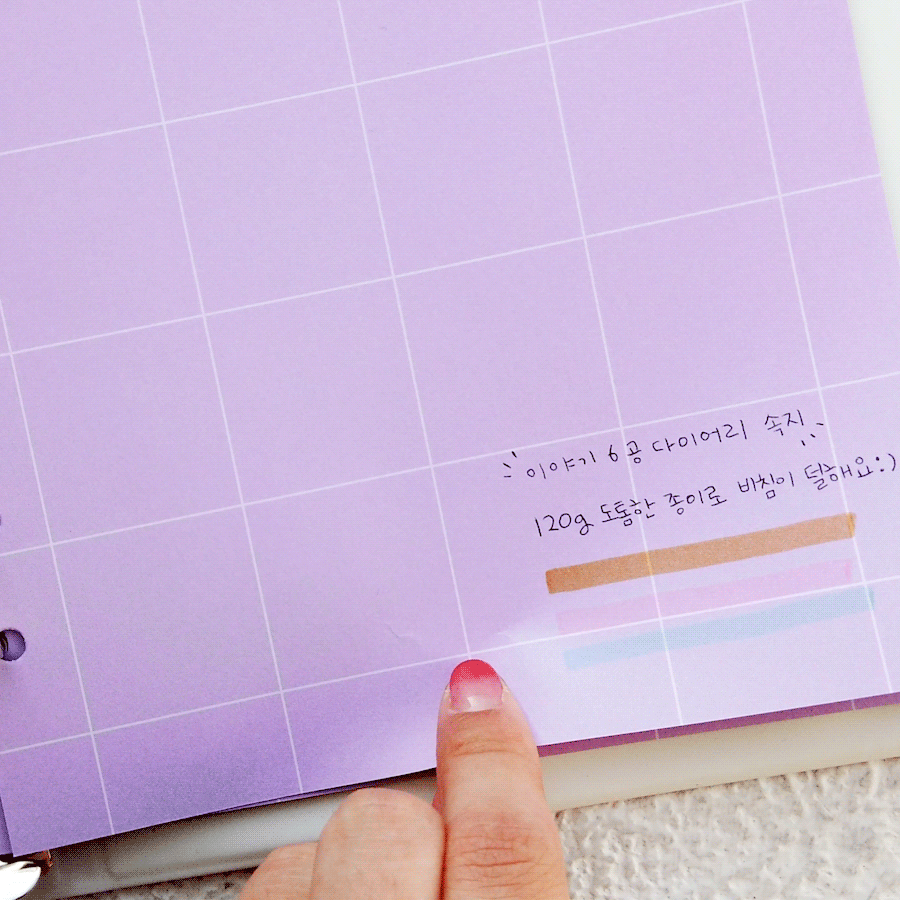 이야기 6공 다이어리 속지
120g 도톰한 종이로 비침이 덜해요:)